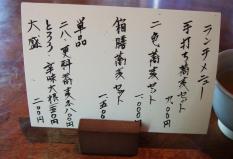 ランチメニュー
手打ち蕎麦セット
九〇〇円
二色蕎麦セット
一,〇〇〇円
箱膳蕎麦セット
一,五〇〇円
単品
二八・更科蕎麦
とろろ・辛味大根二〇〇円
大盛 二〇〇円